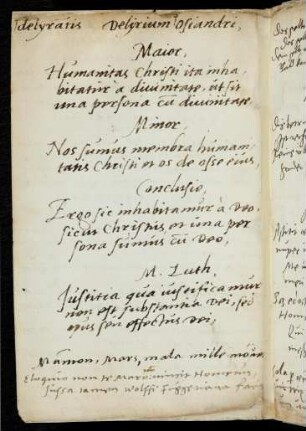 delyrans Delyrium Osiandri,
Maior,
Humanitas Christi ita inha
bitatur à divinitate, ut sit
una persona cū divinitate.
Minor,
Nos sumus membra humani
tatis Christi et os de osse eius,
Conclusio,
Ergo sic inhabitamur à Deo
sicut Christus, et una per
sona sumus cū Deo,
M. Luth,
Justitia qua iustificamur
non est substantia Dei, sed
opus seu effectus Dei,
Mamon, Mars, mala mille
Eloquio non te Maro vincit Homerus,
tamen Wolffi